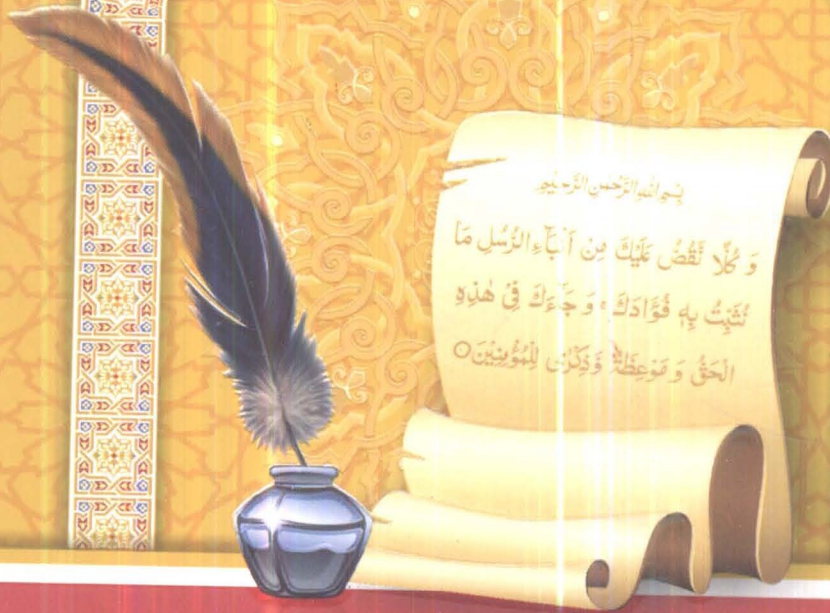 بِسْمِ اللهِ الرَّحْمٰنِ الرَّحِيْمِ
وَ كُلًّا نَّقُصُّ عَلَيْكَ مِنْ اَنْۢبَآءِ الرُّسُلِ مَا
نُثَبِّتُ بِهٖ فُؤَادَكَ ۚ وَ جَآءَكَ فِیْ هٰذِهِ
الْحَقُّ وَ مَوْعِظَةٌ وَّذِكْرٰی لِلْمُؤْمِنِيْنَ○